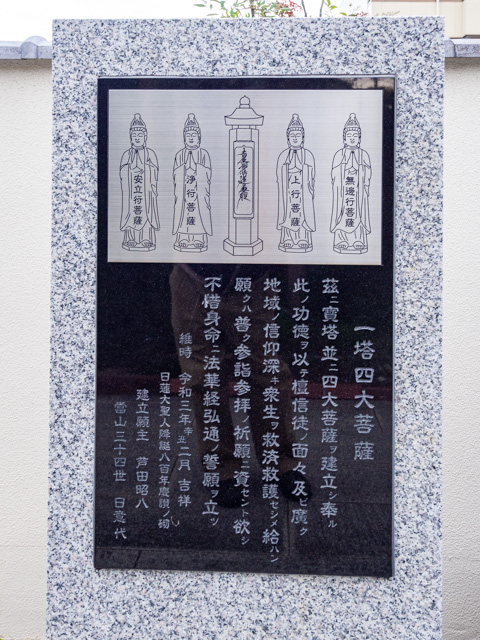 無邊行菩薩
上行菩薩
南無妙法蓮華経
浄行菩薩
安立行菩薩
一塔四大菩薩
茲ニ寶塔並ニ四大菩薩ヲ建立シ奉ル
此ノ功徳ヲ以テ檀信徒ノ面々及ビ廣ク
地域ノ信仰深キ衆生ヲ救済救護セシメ給ハン
願クハ普ク参詣参拝ノ祈願ニ資セント欲シ
不惜身命ニ法華経弘通ノ誓願ヲ立ツ
維時 令和三年辛丑二月 吉祥
日蓮大聖人降誕八百年慶讃ノ砌
建立願主 芦田昭八
當山三十四世 日意代